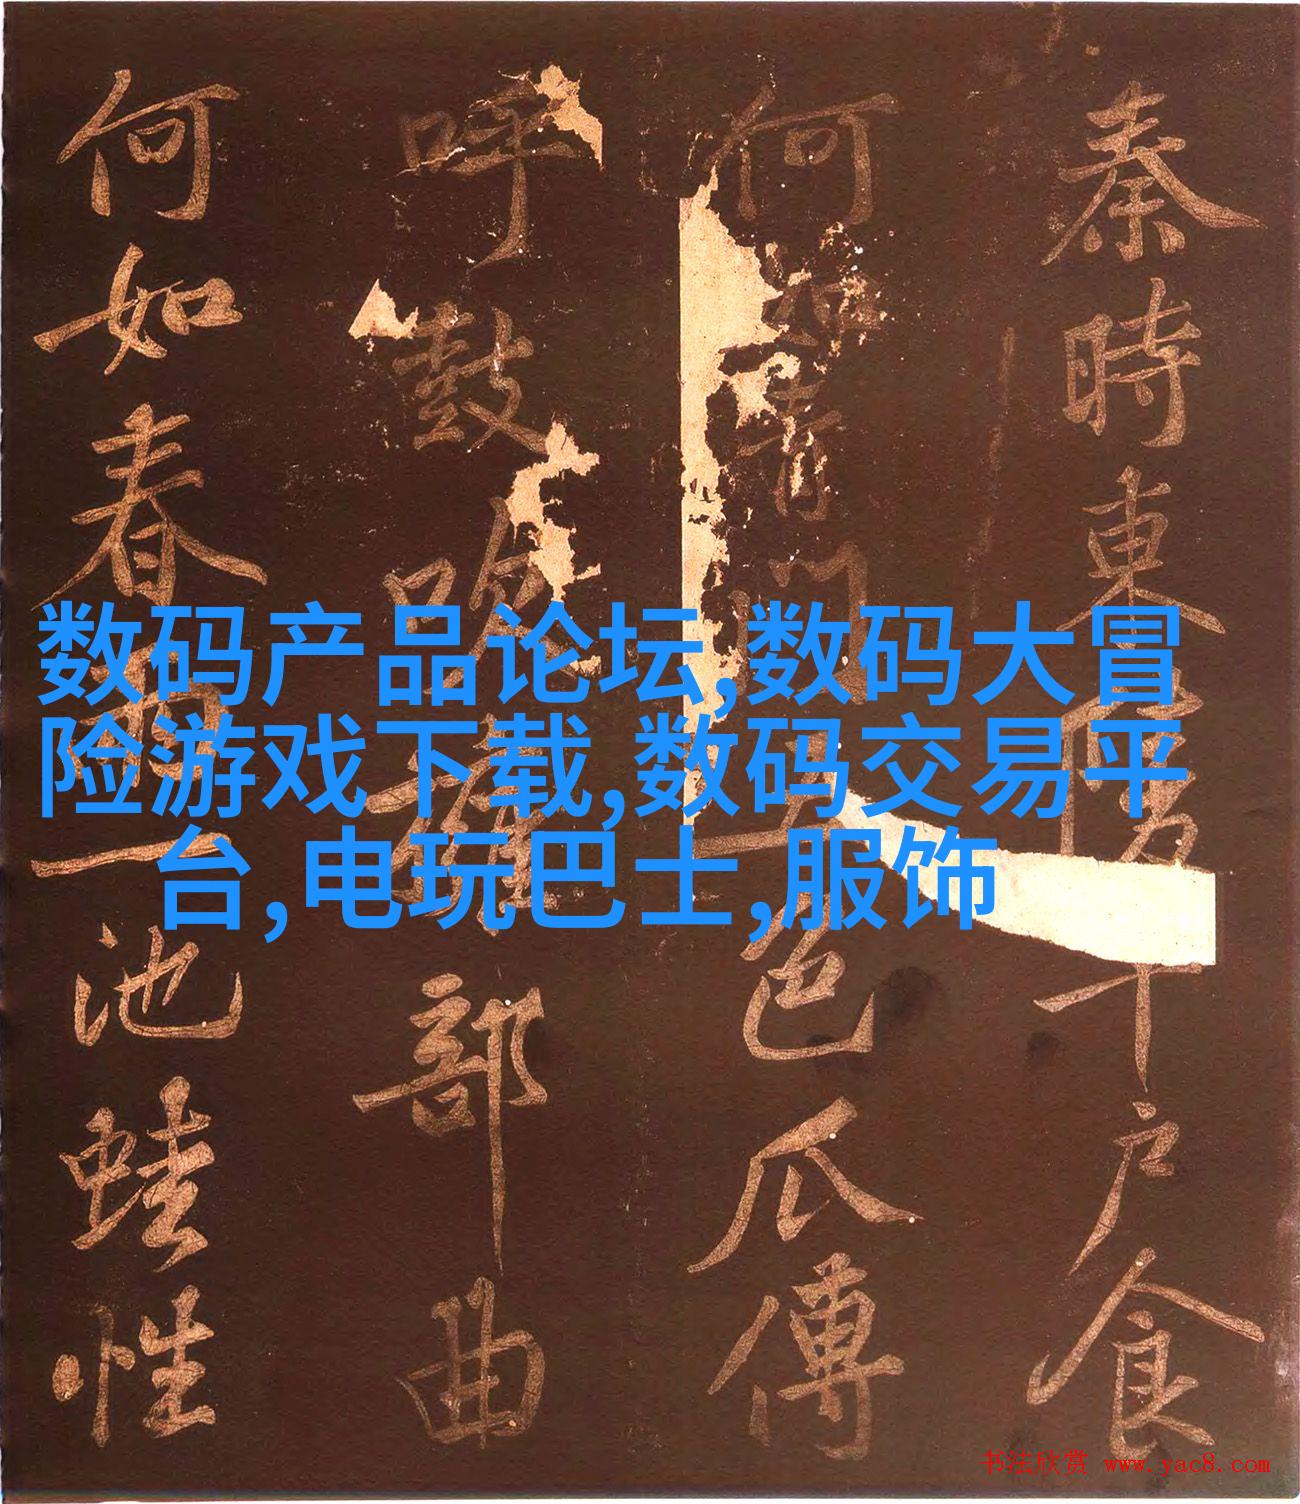 秦時東陵千戶食
何如青門五色瓜傳
呼鼓吹擁部曲
何如春雨一池蛙性
数码产品论坛,数码大冒
险游戏下载,数码交易平
台,电玩巴士,服饰
书法欣赏 www.yac8.com